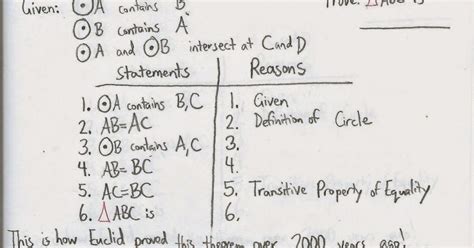 Given: ⊙A contains B
Prove: △ABC is
⊙B contains A
⊙A and ⊙B intersect at C and D
Statements Reasons
1. ⊙A contains B,C 1. Given
2. AB=AC 2. Definition of Circle
3. ⊙B contains A,C 3.
4. AB=BC 4.
5. AC=BC 5. Transitive Property of Equality
6. △ABC is 6.
This is how Euclid proved this theorem over 2000 years ago!